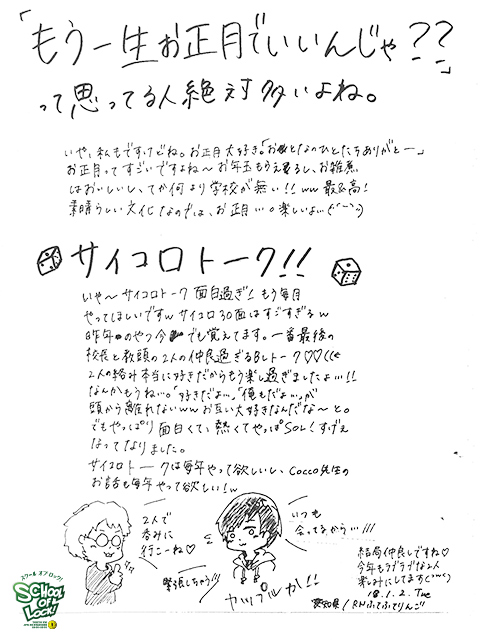 「もう一生お正月でいいんじゃ??」
って思ってる人絶対多いよね。
いや、私もですけどね。お正月大好き。「おとなのひとたちありがとー」
お正月ってすごいですよね〜お年玉もらえるし、お雑煮
はおいしいし、てか何より学校が無い!!ww最高!
素晴らしい文化なのでは、お正月…。楽しいよぃ(*´︶`*)
サイコロトーク!!
いや〜サイコロトーク面白過ぎ!もう毎月
やってほしいですwサイコロ30面はすごすぎるw
昨年のやつ今でも覚えてます。一番最後の
校長と教頭の2人の仲良過ぎるBLトーク♡♡(((
2人の絡み本当に好きだからもう楽し過ぎましたよ…!!
なんかもうね…。「好きだよ…」「俺もだよ…」が
頭から離れないwwお互い大好きなんだな〜と。
でもやっぱり面白くて、熱くてやっぱSOL!すげえ
なってなりました。
サイコロトークは毎年やって欲しいし、Cocco先生の
お話も毎年やって欲しい!w
2人で
呑みに
行こーね♡
いつも
会ってるから…///
緊張しちゃう!!
カップルか!!
結局仲良しですね♡
今年もラブラブな2人
楽しみにしてます(*´︶`*)
18.1.2. Tue
愛知県/RNふてふてりんご
スクール オブ ロック!
SCHOOL
OF
LOCK!